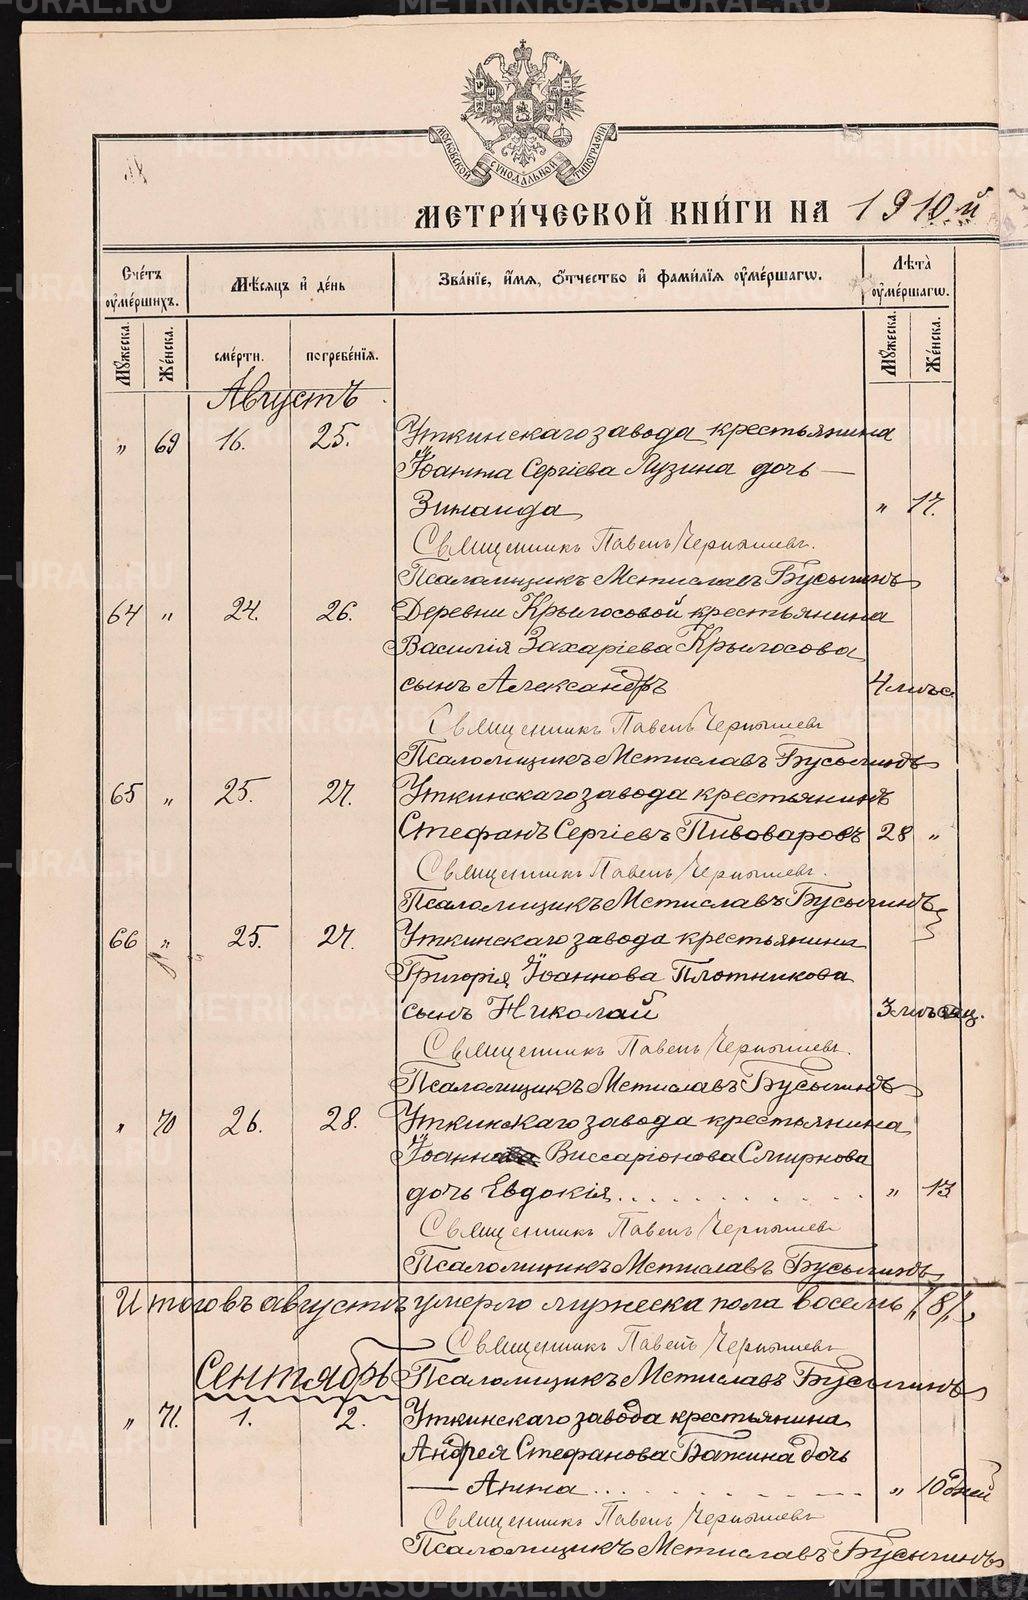 МОСКОВСКОЙ СѴНОДАЛЬНОЙ ТИПОГРАФІИ
МЕТРИ́ЧЕСКОЙ КНИ́ГИ НА 1910й
Сче́тъ ᲂу҆ме́ршихъ.
Мѣ́сяцъ и҆ де́нь
Зва́нїе, и҆́мя, ѻ҆́тчество и҆ фами́лїя ᲂу҆ме́ршагѡ.
Лѣта̀ ᲂу҆ме́ршагѡ.
Мꙋ́жеска. Же́нска. сме́рти. погребе́нїя. Мꙋ́жеска. Же́нска.
Августъ
„ 69 16. 25. Уткинскаго завода крестьянина
Іоанна Сергіева Лузина дочь —
Зинаида „ 17.
Священникъ Павелъ Чернышевъ.
Псаломщикъ Мстиславъ Бусыгинъ
64 „ 24. 26. Деревни Крылосовой крестьянина
Василія Захаріева Крылосова
сынъ Александръ 4 мѣс.
Священникъ Павелъ Чернышевъ
Псаломщикъ Мстиславъ Бусыгинъ
65 „ 25. 27. Уткинскаго завода крестьянинъ
Стефанъ Сергіевъ Пивоваровъ 28 „
Священникъ Павелъ Чернышевъ.
Псаломщикъ Мстиславъ Бусыгинъ
66 „ 25. 27. Уткинскаго завода крестьянина
Григорія Іоаннова Плотникова
сынъ Николай 3 мѣсяц.
Священникъ Павелъ Чернышевъ.
Псаломщикъ Мстиславъ Бусыгинъ
„ 70 26. 28. Уткинскаго завода крестьянина
Іоанна Виссаріонова Смирнова
дочь Евдокія . . . . . . . . . . . „ 13
Священникъ Павелъ Чернышевъ
Псаломщикъ Мстиславъ Бусыгинъ
Итого въ августѣ умерло мужеска пола восемь /8/
Священникъ Павелъ Чернышевъ
Сентябрь Псаломщикъ Мстиславъ Бусыгинъ
„ 71. 1. 2. Уткинскаго завода крестьянина
Андрея Стефанова Бажина дочь
— Анна . . . . . . . . . . „ 10 дней
Священникъ Павелъ Чернышевъ
Псаломщикъ Мстиславъ Бусыгинъ
METRIKI.GASU-URAL.RU